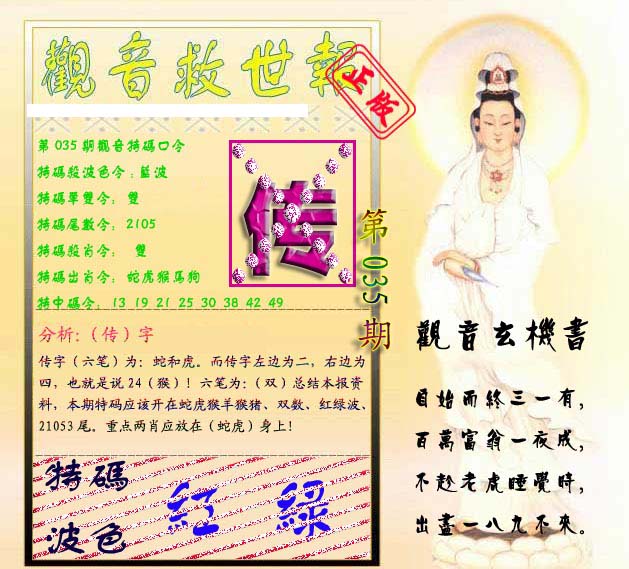 觀音救世報
正版
第035期觀音特碼口令
特碼殺波色令:藍波
特碼單雙令: 雙
特碼尾數令: 2105
特碼殺肖令: 雙
特碼出肖令: 蛇虎猴馬狗
特中碼令: 13 19 21 25 30 38 42 49
传
第035期
分析:(传)字
传字(六笔)为: 蛇和虎。而传字左边为二, 右边为
四, 也就是说24(猴)! 六笔为:(双)总结本报资
料, 本期特码应该开在蛇虎猴羊猴猪、双数、红绿波、
21053尾。重点两肖应放在(蛇虎)身上!
特碼
波色
紅 綠
觀音玄機書
自始而終三一有,
百萬富翁一夜成,
不趁老虎睡覺時,
出盡一八九不來。